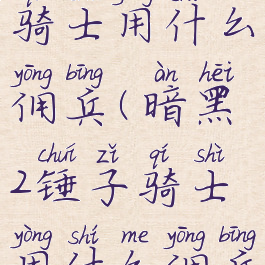 骑士用什么
yōng bīng àn hēi
佣兵(暗黑
chuí zǐ qí shì
2锤子骑士
yòng shí me yōng bīng